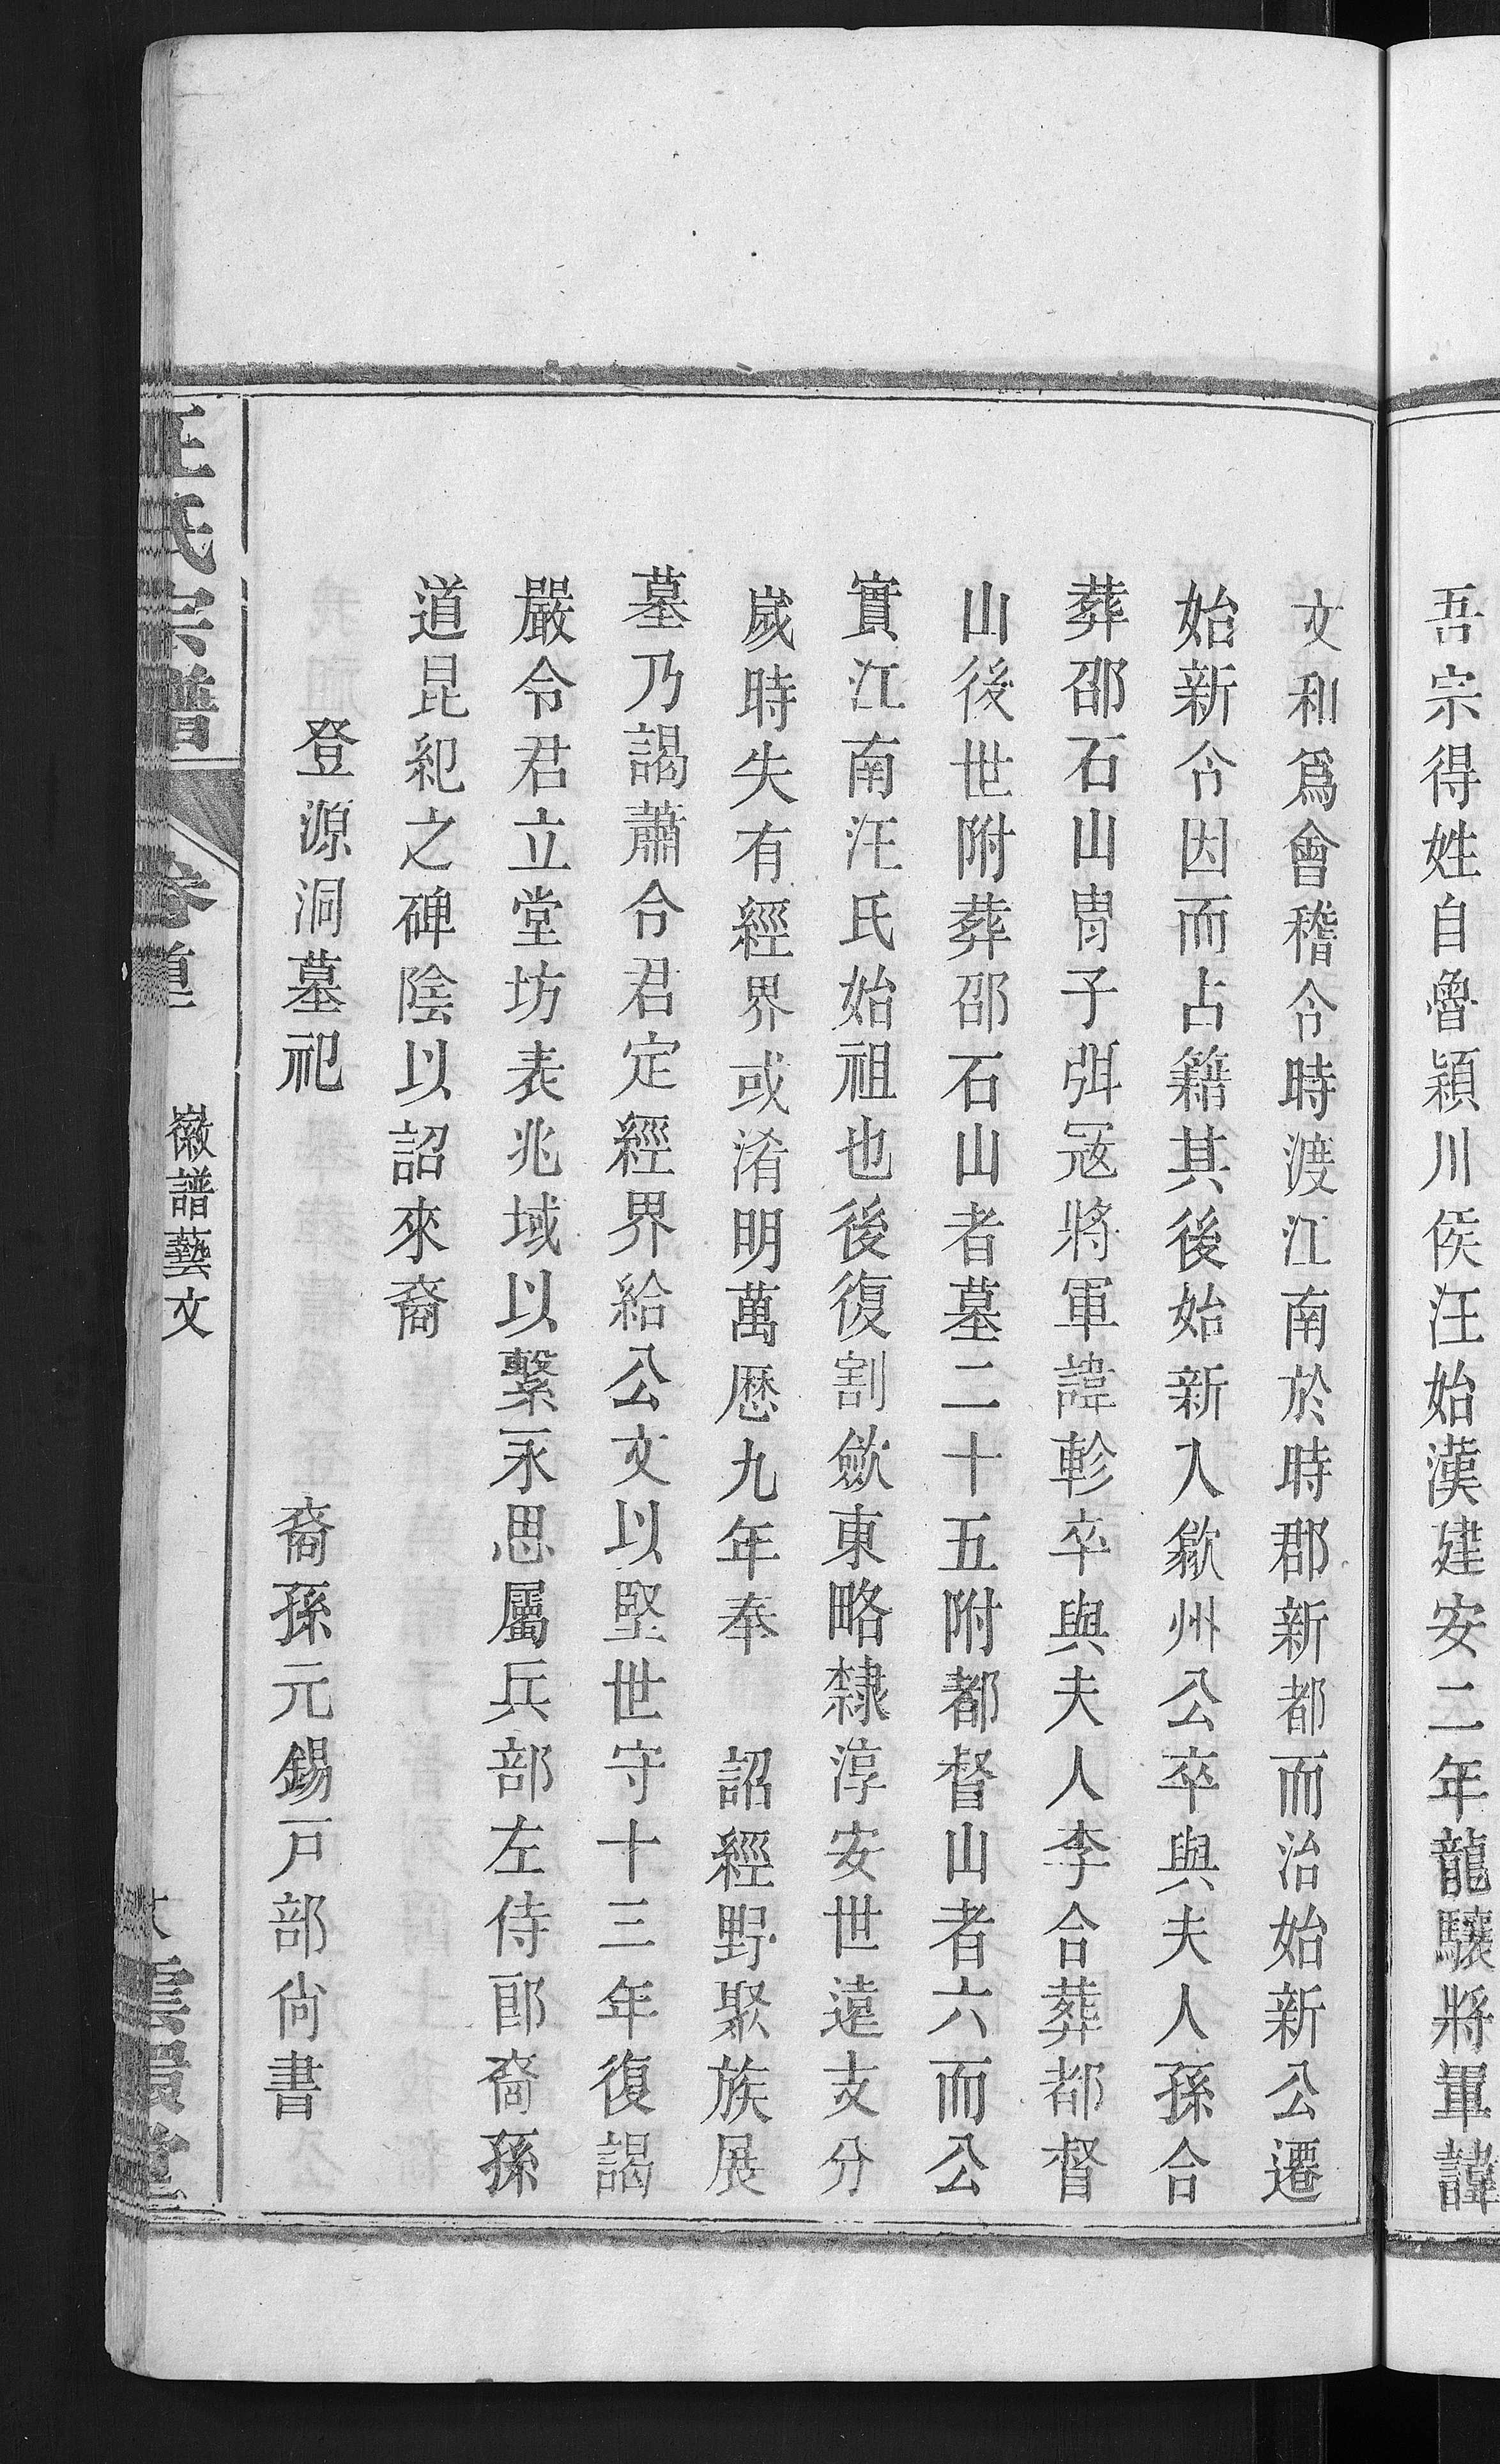 吾宗得姓自魯潁川侯汪始漢建安二年龍驤將軍諱
文和爲會稽令時渡江南於時郡新都而治始新公遷
始新令因而占籍其後始新入歙州公卒與夫人孫合
葬邵石山冑子弭冦將軍諱軫卒與夫人李合葬都督
山後世附葬邵石山者墓二十五附都督山者六而公
實江南汪氏始祖也後復割歙東略隸淳安世遠支分
嵗時失有經界或淆明萬歴九年奉 詔經野聚族展
墓乃謁蕭令君定經界給公文以堅世守十三年復謁
嚴令君立堂坊表兆域以繫永思屬兵部左侍郎裔孫
道昆紀之碑陰以詔來裔
登源洞墓祀 裔孫元錫戸部尙書
汪氏宗譜 卷首 徽譜藝文